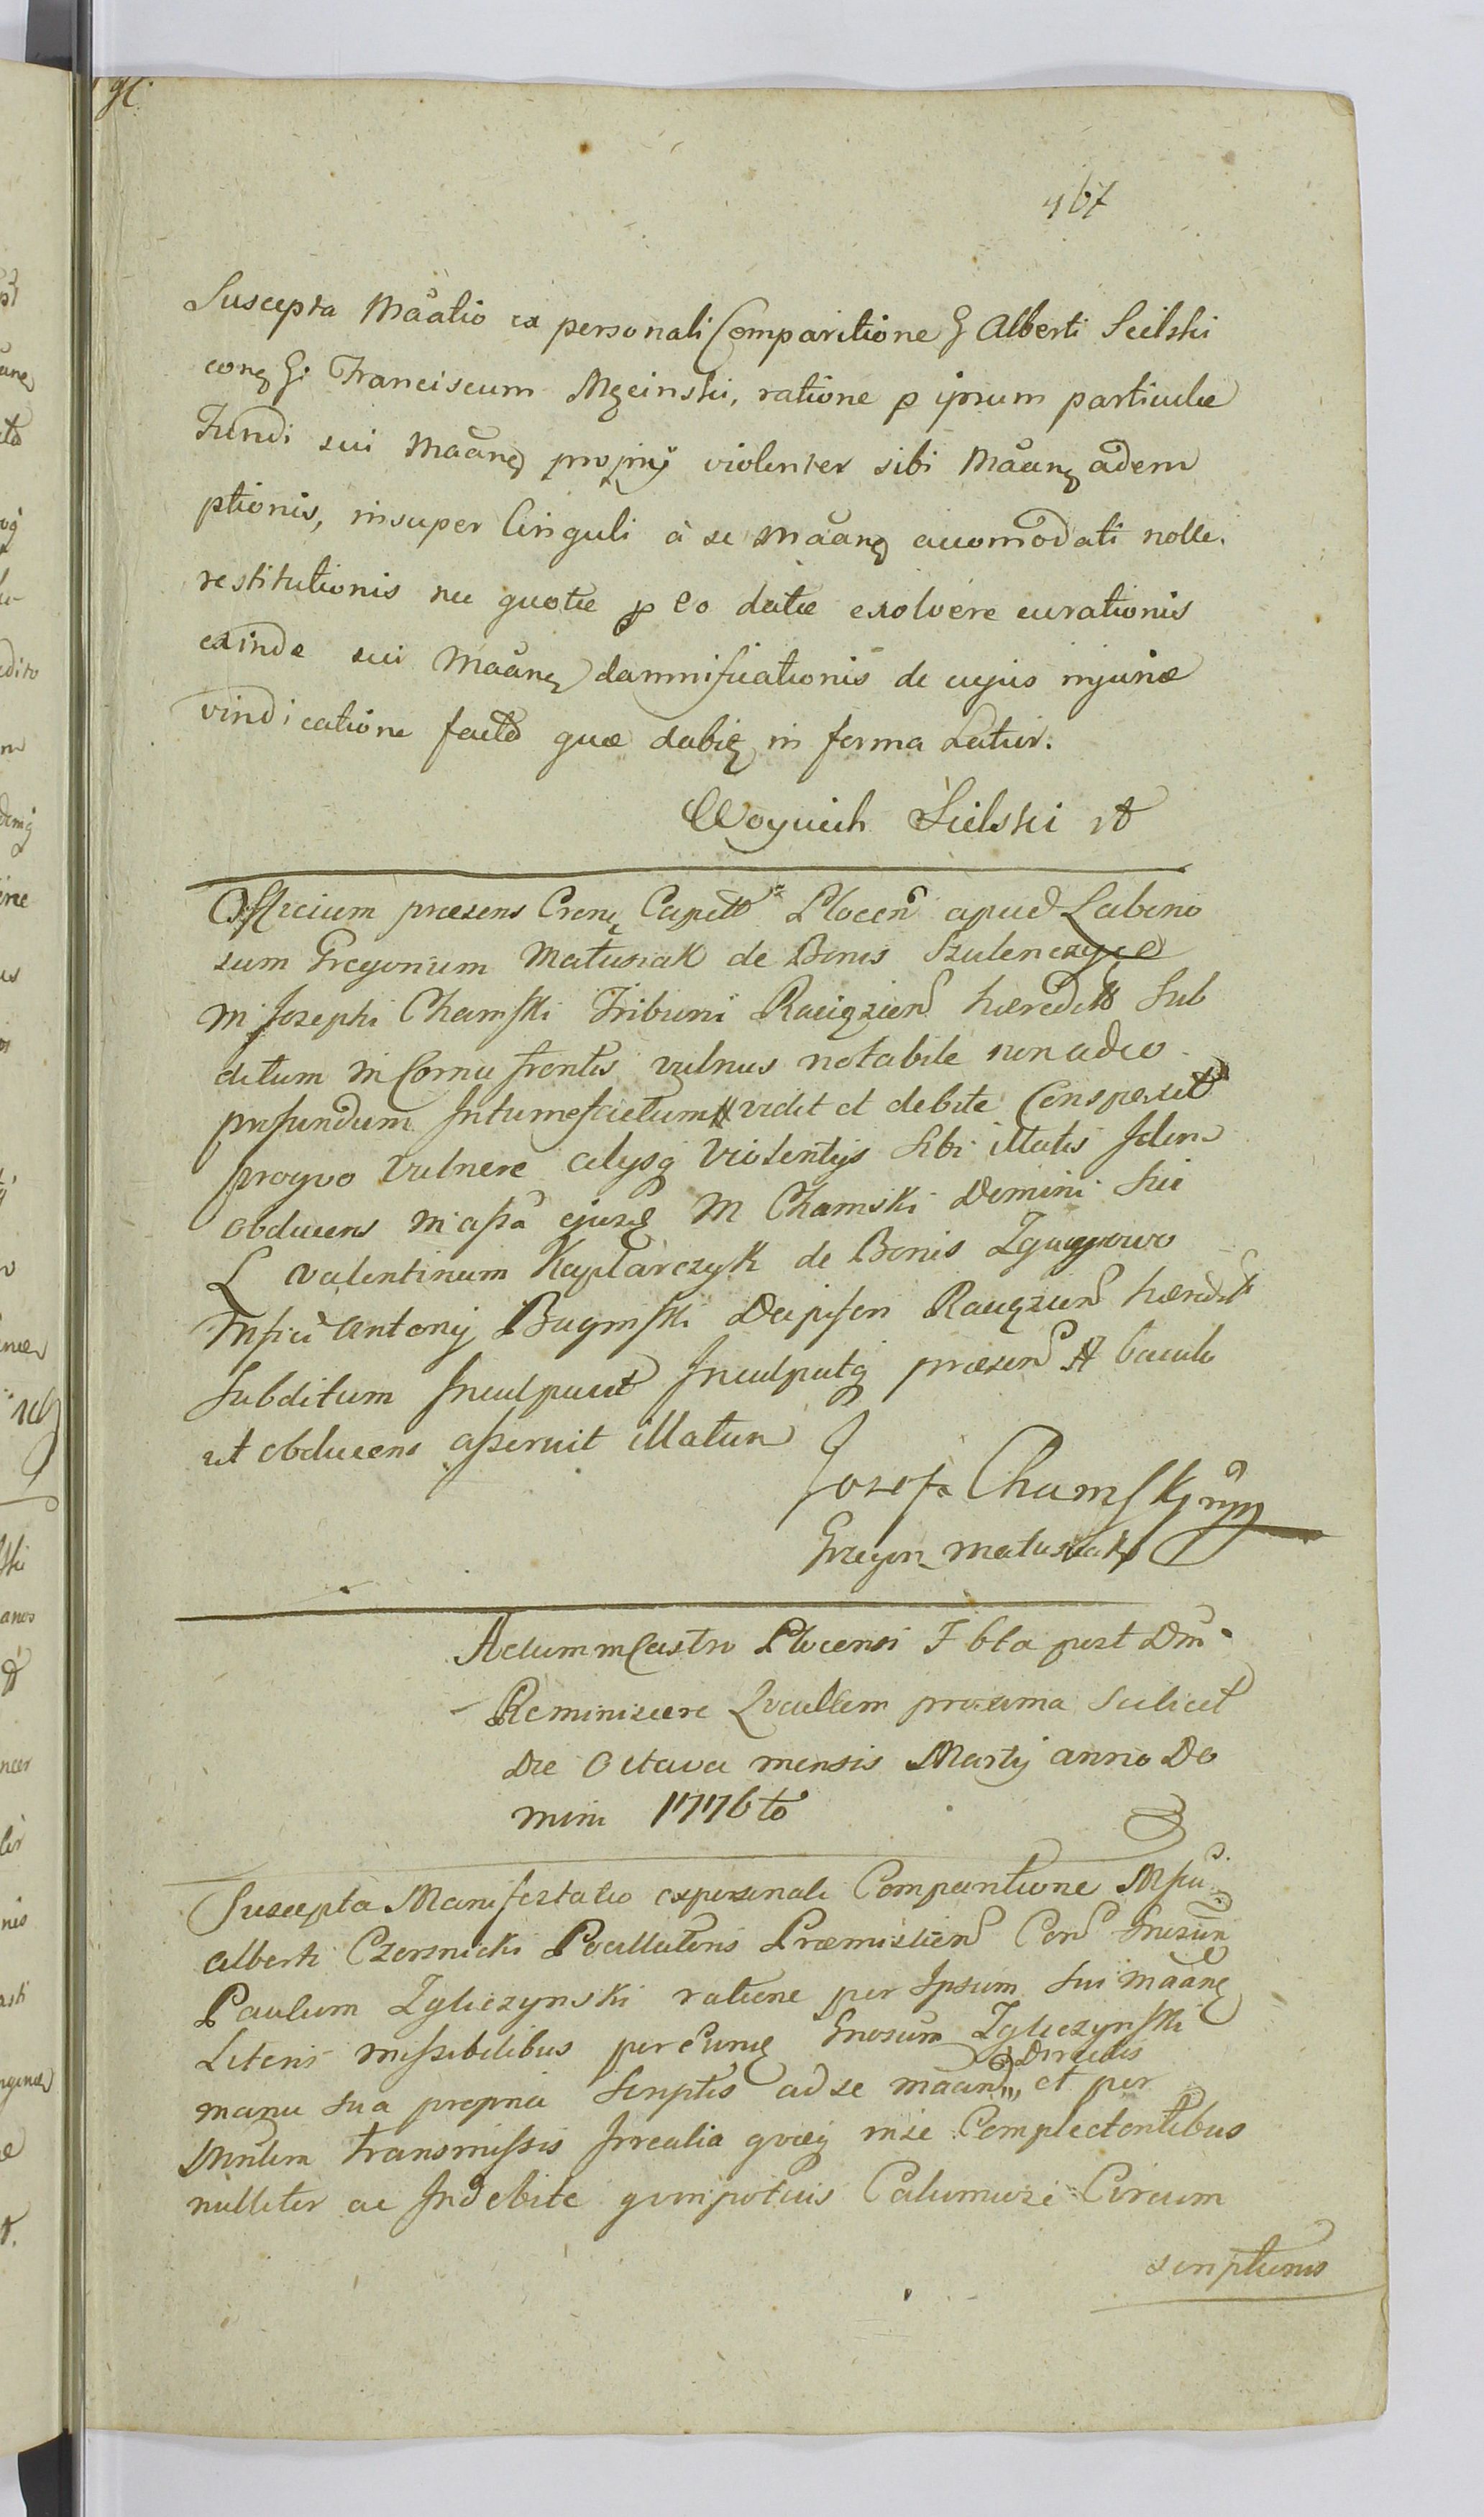 467
Suscepta Maãtio ex personali Comparitione G Alberti Sielski
conq G. Franciscum Mzcinski, ratione p ipsum particulæ
Fundi sui Maãnq proprij violenter sibi Maãnq adem
ptionis, insuper Cinguli à se Maãnq accomodati nolle
restitutionis nec quotæ p eo datæ exolvere curationis
exinde sui Maãnq damnificationis de cujus injuriæ
vindicatione facto quæ dabiq in forma Latur.
Woyciech Sielski
Officium præsens Crenq Capit Plocen apud Labino
sum Gregorium Matusiak de Bonis Szulenczyce
M Josephi Chamski Tribuni Raciązien hæredit Sub
ditum in Cornu frontis vulnus notabile non adeo
profundum Intumefactum vidit et debite Conspexit
proqvo Vulnere alysq Violentijs Sibi illatis Iden
obducens in assã ejusq M Chamski Domini Sui
L Valentinum Kaptarczyk de Bonis
Mfici Antonij Buginski Dapiferi Raciązien hæredit
Subditum Inculpavit Inculpatq præsen baculo
ut obducens asseruit illatum
Jozef Chamski mp
Grzegorz Matusiak
Actum in Castro Plocensi F 6ta post Dm
Reminiscere Qvadlem proxima Scilicet
Die Octava mensis Martij anno Do
mini 1776to
Suscepta Manifestatio expersonali Comparitione Mfici
Alberti Czersnicki Pocillatoris Præmislien Con Gnosum
Paulum Zgliczynski ratione per Ipsum Sui maãnq
Literis missibilibus per Eunq Gnosum Zgliczynski
Directis
manu sua propria Scriptis ad se maãnq et per
transmissis Irrealia qvæq in se Complectentibus
nulliter ac Indebite Calumnose Circum
scriptionis